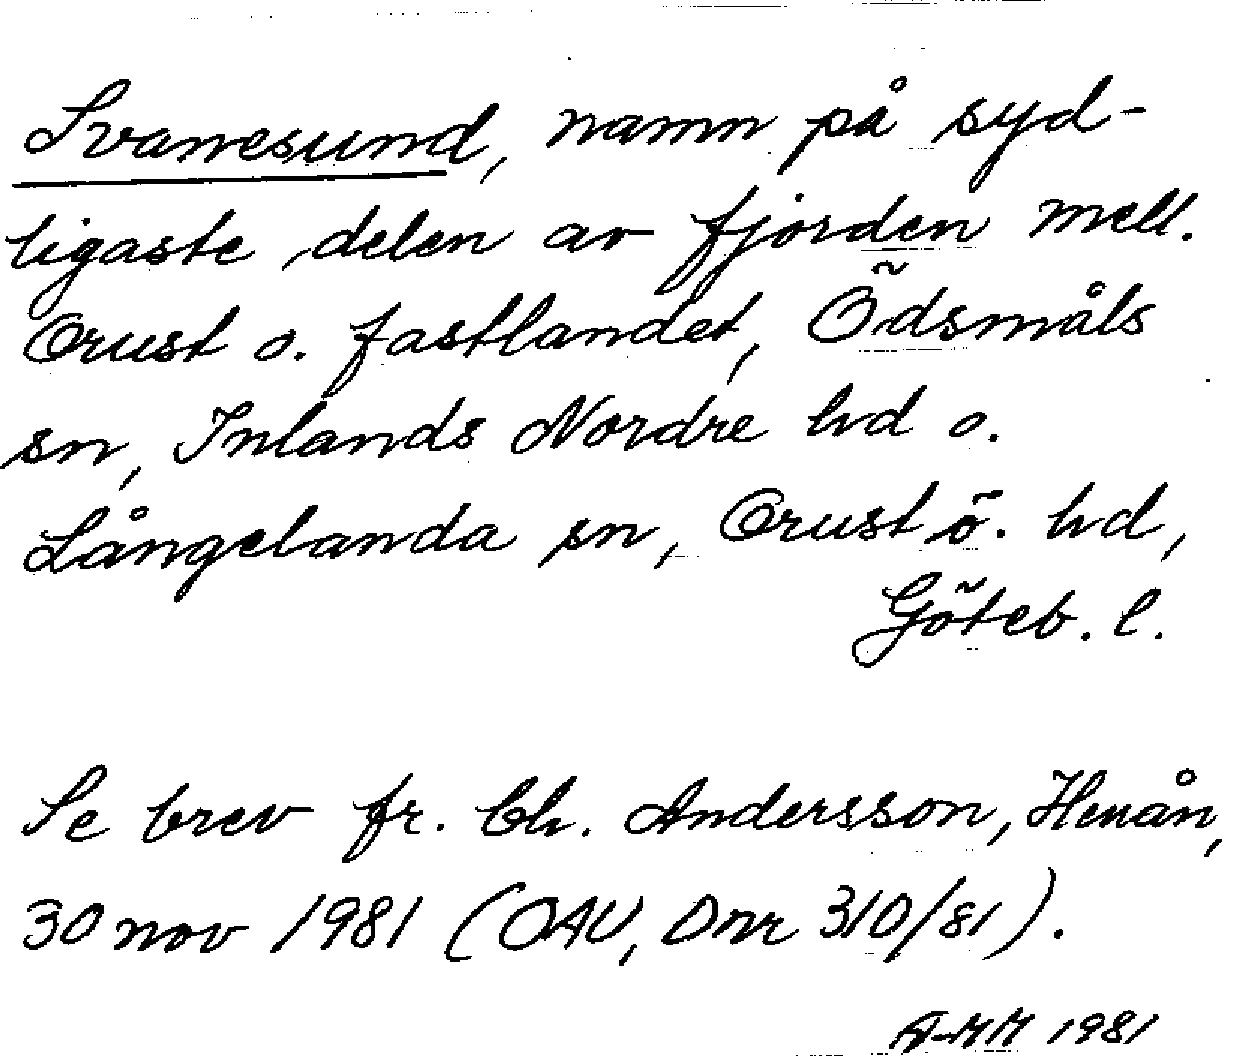 Svanesund, namn på syd-
ligaste delen av fjorden mell.
Orust o. fastlandet, Ödsmåls
sn, Inlands Nordre hd o.
Långelanda sn, Orust ö. hd,
Göteb. l.
Se brev fr. Ch. Andersson, Henån,
30 nov 1981 (OAU, Dnr 310/81).
A-MH 1981